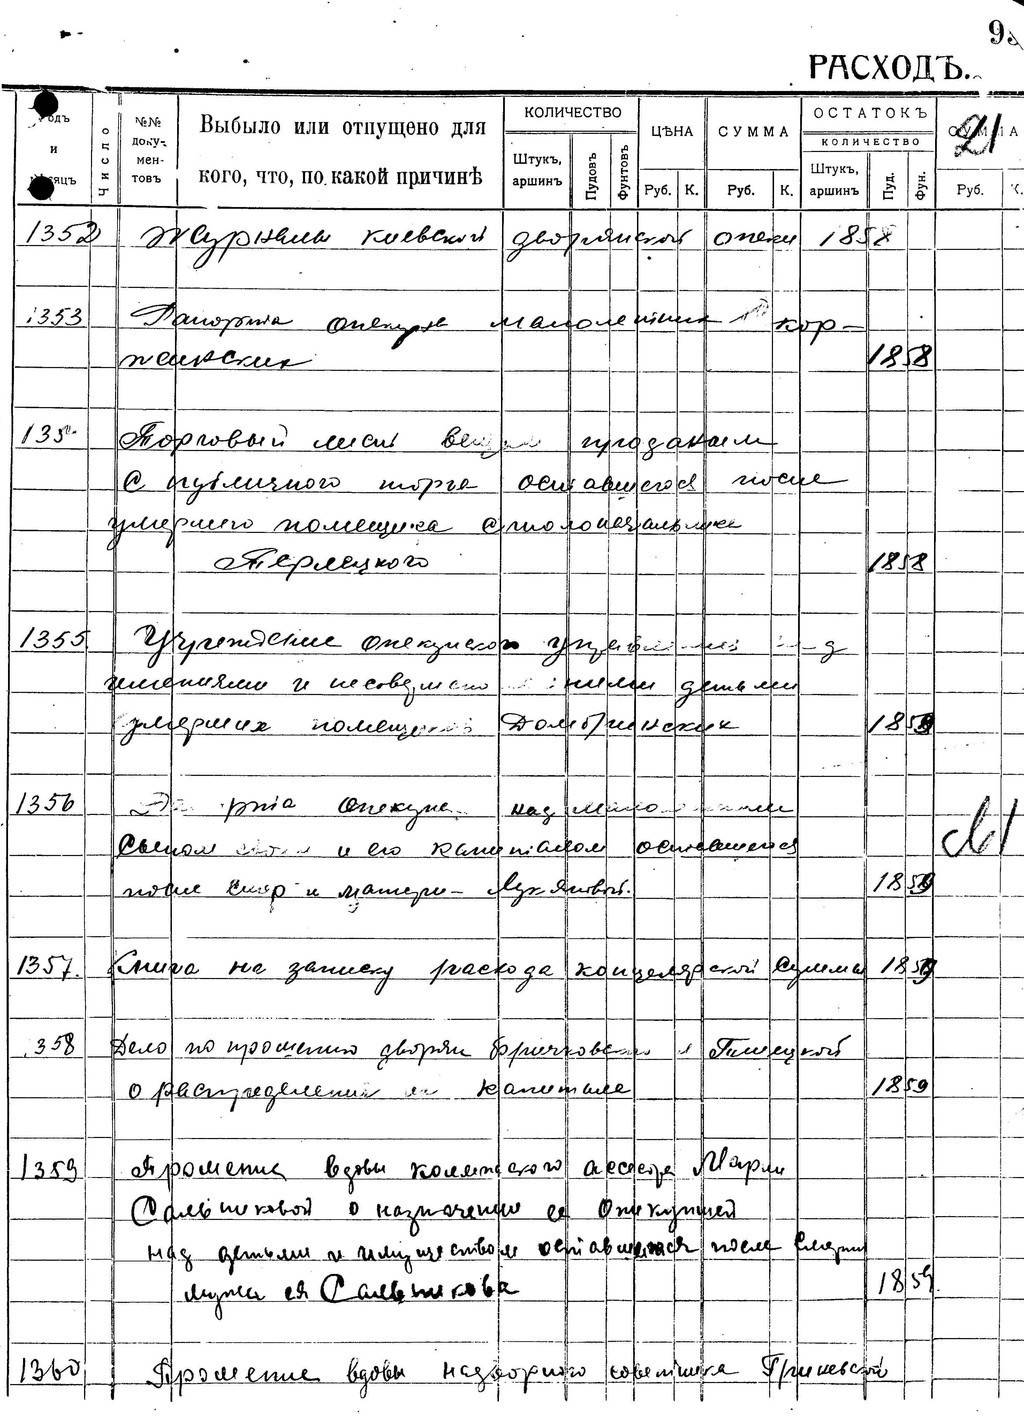 РАСХОДЪ.
Число
№№ документовъ
Выбыло или отпущено для кого, что, по какой причинѣ
КОЛИЧЕСТВО
Штукъ, аршинъ
Пудовъ
Фунтовъ
ЦѢНА
Руб. К.
СУММА
Руб. К.
ОСТАТОКЪ
КОЛИЧЕСТВО
Штукъ, аршинъ
Пуд.
Фун.
21
Руб.
1352 Журналы киевской дворянской опеки 1858
1353 Рапорта опекуна малолетних Кор-
жинских 1858
Торговый лист вещам проданым
с публичного торга оставшегося после
умершего помещика столоначальника
Терлецкого 1858
1355 Учреждение опекунского управления над
имениями и несовершеннолетними детьми
умерших помещиков Домбринских
1356 опекуна над малолетним
сыном и его капиталом оставшегося
после матери Лукяновой. 1859
1357. Книга на записку расхода концелярской суммы 1859
358 Дело по прошению дворян и
о распределении их капитала 1859
1359 Прошение вдовы коллежского асесора Марии
Сальниковой о назначение ее опекуншей
над детьми и имуществом оставшегося после смерти
мужа ея Сальникова 1859
1360 Прошение вдовы надворного советника Гриневской